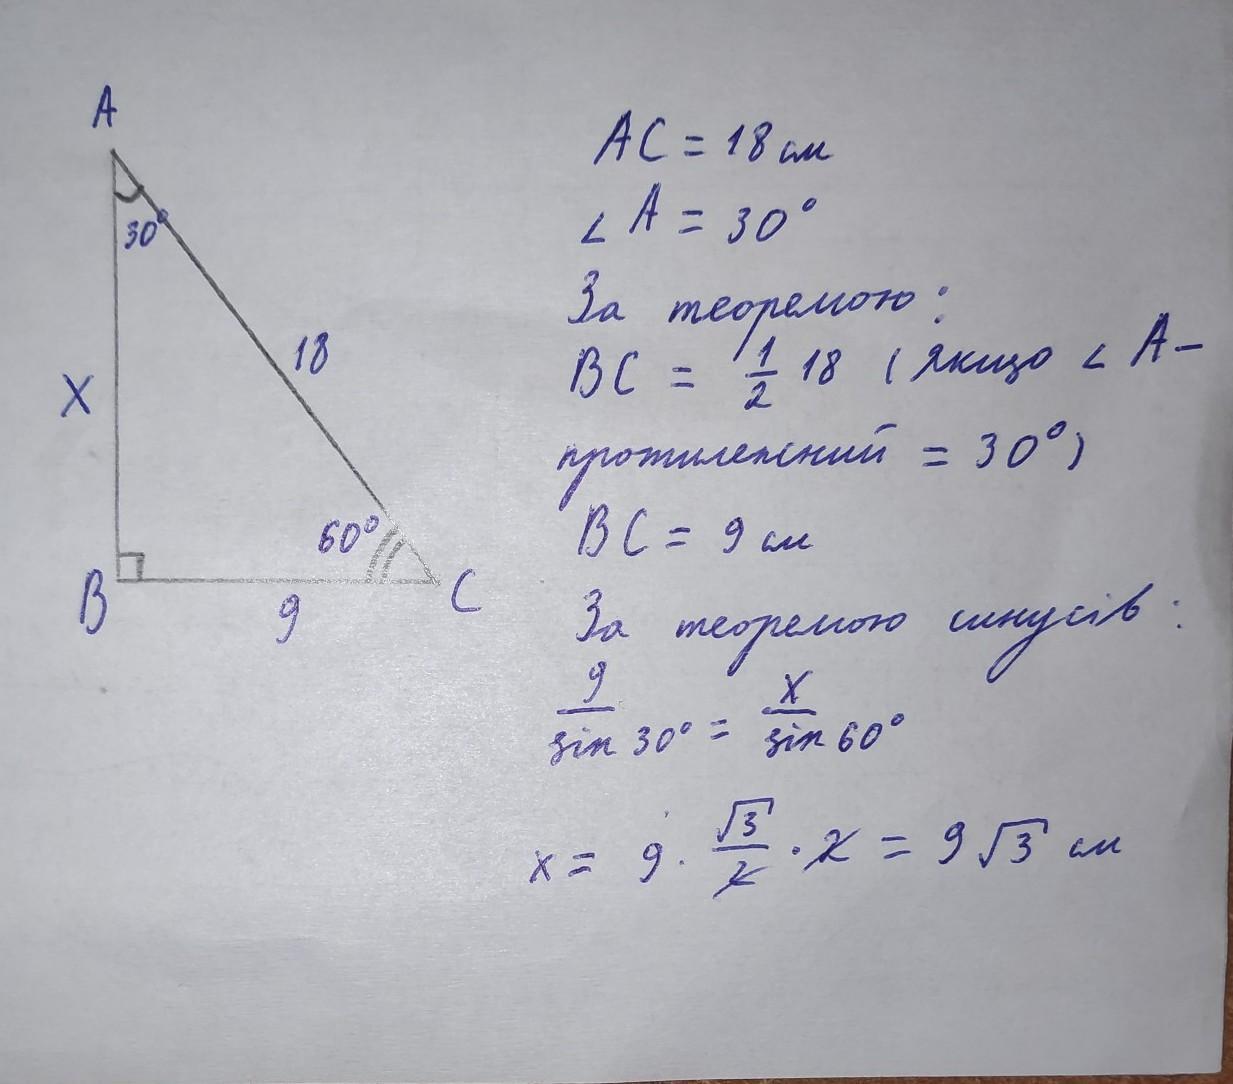 A
30°
18
X
60°
B
9
C
AC = 18 см
∠ A = 30°
За теоремою:
BC = 1/2 18 (якщо ∠ A -
протилежний = 30°)
BC = 9 см
За теоремою синусів:
9/sin 30° = x/sin 60°
x = 9 · √3/2 · 2 = 9√3 см